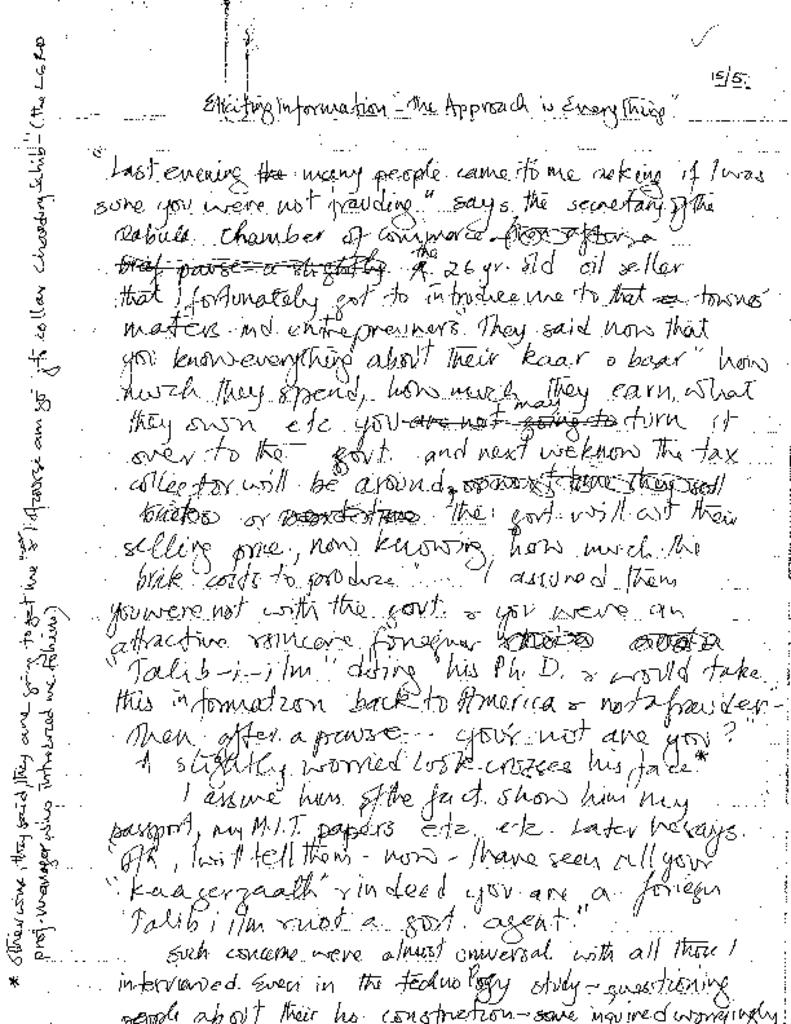 15/5.
Eliciting Information - "the Approach is Everything"
"Last evening the many people came to me asking if I was
sure you were not frauding." says the secretary of the
chamber of commerce
brief pause a slightly the 26 yr. old oil seller
that I fortunately got to introduce me to that towns
and entrepreneurs". They said now that
you know everything about their "kaar o baar" how
much they spend, how much they earn, what
they own etc you are not going to may turn it
over to the govt and next we know the tax
collector will be around,
or the govt will cut their
selling price, now knowing how much the
brick costs to produce" .... I assured them
you were not with the govt. & you were an
foreigner
"Talib-i-ilm" doing his Ph.D. & would take
this information back to America & not a frauder -
Then after a pause... your not are you?"
A slightly worried look crosses his face*
I assure him of the fact, show him my
passport, my M.I.T. papers etc. etc. Later he says.
"Ok, I will tell them - now - I have seen all your
"kaagerzaath" - indeed you are a foreign
Talib i ilm & not a govt. agent."
Such concerns were almost universal with all those I
interviewed. Even in the technology study - questioning
people about their construction - some inquired worryingly
* Otherwise, they said, they are going to get me
proj. manager who introduced me to him)